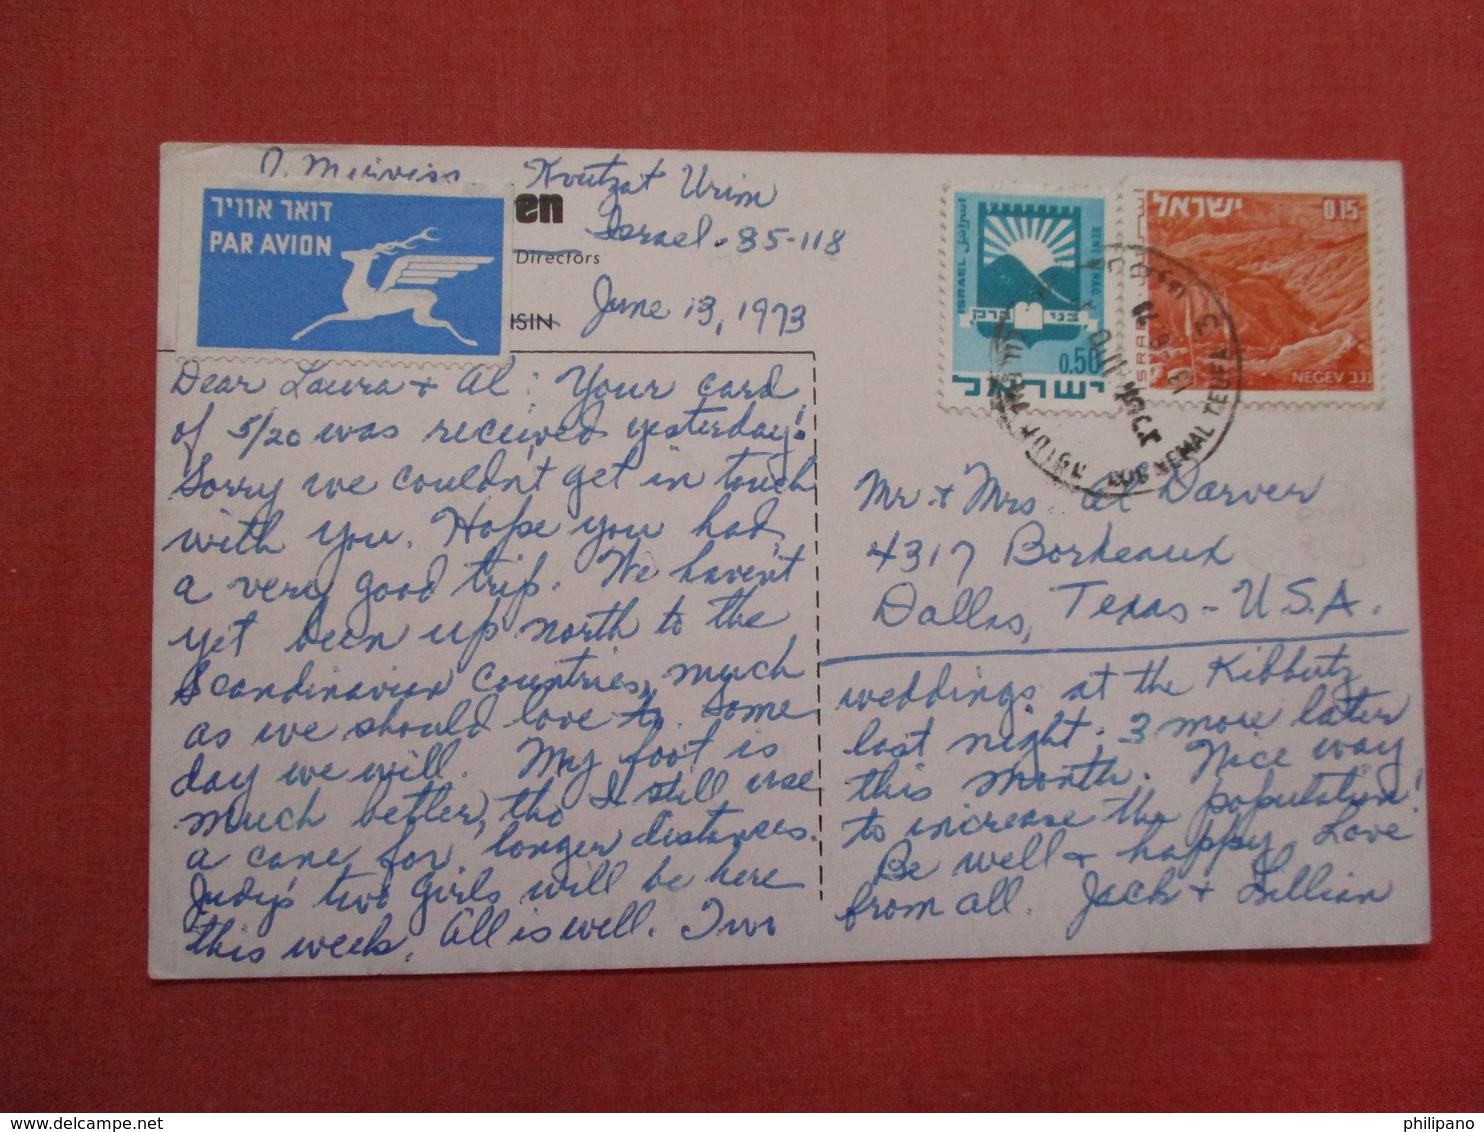 Kvutzat Urim
דואר אוויר
PAR AVION
en
Israel. 85-118
Directors
ISIN
June 13, 1973
ISRAEL
0.50
ישראל
בני ברק
ישראל
0.15
ISRAEL
NEGEV נגב
Dear Laura + Al: Your card
of 5/20 was received yesterday!
Sorry we couldn't get in touch
with you. Hope you had
a very good trip. We haven't
yet been up north to the
Scandinavian countries, much
as we should love to. Some
day we will. My foot is
much better, tho I still use
a cane for longer distances.
Judy's two girls will be here
this week. All is well. Two
Mr. + Mrs. Al Darver
4317 Bordeaux
Dallas, Texas - U.S.A.
weddings at the Kibbutz
last night; 3 more later
this month. Nice way
to increase the population!
Be well + happy. Love
from all. Jack + Lillian
philipano
delcampe.net